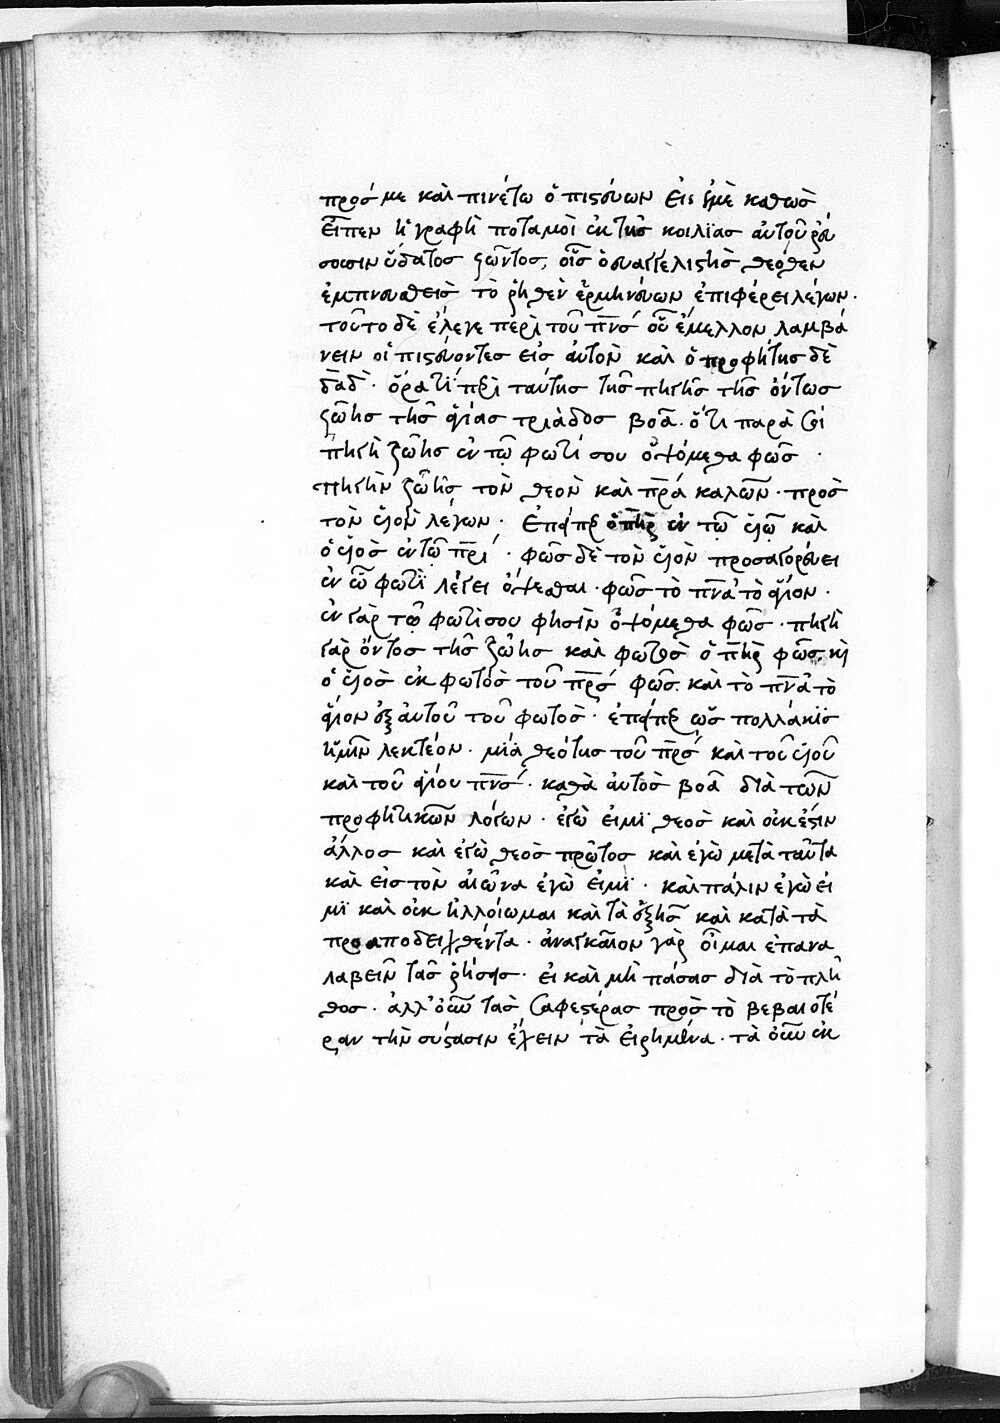 πρός με καὶ πινέτω ὁ πιστεύων εἰς ἐμὲ καθὼς
εἶπεν ἡ γραφὴ ποταμοὶ ἐκ τῆς κοιλίας αὐτοῦ ῥεύ
σωσιν ὕδατος ζῶντος, οἷς ὁ εὐαγγελιστὴς θεόθεν
ἐμπνευσθεὶς τὸ ῥηθὲν ἑρμηνεύων ἐπιφέρει λέγων.
τοῦτο δὲ ἔλεγε περὶ τοῦ πνς οὗ ἔμελλον λαμβά
νειν οἱ πιστεύοντες εἰς αὐτὸν καὶ ὁ προφήτης δὲ
δαδ. ὅρα τί περὶ ταύτης τῆς πηγῆς τῆς ὄντως
ζωῆς τῆς ἁγίας τριάδος βοᾶ. ὅτι παρὰ σοὶ
πηγὴ ζωῆς ἐν τῷ φωτί σου ὀψόμεθα φῶς.
πηγὴν ζωῆς τὸν θεὸν καὶ πρα καλῶν. πρὸς
τὸν υἱὸν λέγων. ἐπείπερ ὁ πηρ ἐν τῷ υἱῷ καὶ
ὁ υἱὸς ἐν τῷ πρι. φῶς δὲ τὸν υἱὸν προσαγορεύει
ἐν ᾧ φωτὶ λέγει ὄψεσθαι. φῶς τὸ πνα τὸ ἅγιον.
ἐν γὰρ τῷ φωτί σου φησὶν ὀψόμεθα φῶς. πηγὴ
γὰρ ὄντος τῆς ζωῆς καὶ φωτὸς ὁ πηρ φῶς. κὶ
ὁ υἱὸς ἐκ φωτὸς τοῦ πρς φῶς. καὶ τὸ πνα τὸ
ἅγιον ἐξ αὐτοῦ τοῦ φωτὸς. ἐπείπερ ὡς πολλάκις
ἡμῖν λεκτέον. μία θεότης τοῦ πρς καὶ τοῦ υἱοῦ
καὶ τοῦ ἁγίου πνς. καθὰ αὐτὸς βοᾶ διὰ τῶν
προφητικῶν λόγων. ἐγώ εἰμι θεὸς καὶ οὐκ ἔστιν
ἄλλος καὶ ἐγὼ θεὸς πρῶτος καὶ ἐγὼ μετὰ ταῦτα
καὶ εἰς τὸν αἰῶνα ἐγώ εἰμι. καὶ πάλιν ἐγώ εἰ
μι καὶ οὐκ ἠλλοίωμαι καὶ τὰ ἑξῆς καὶ κατὰ τὰ
προαποδειχθέντα. ἀναγκαῖον γὰρ οἶμαι ἐπανα
λαβεῖν τὰς ῥήσεις. εἰ καὶ μὴ πάσας διὰ τὸ πλῆ
θος. ἀλλ' οὖν τὰς σαφεστέρας πρὸς τὸ βεβαιοτέ
ραν τὴν σύστασιν ἔχειν τὰ εἰρημένα. τὰ οὖν ἐκ